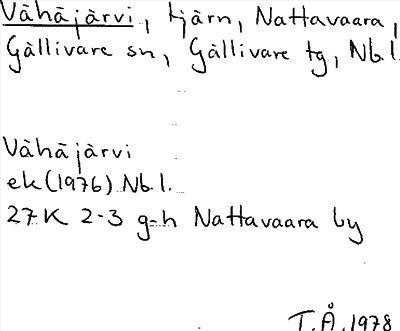 Vähäjärvi, tjärn, Nattavaara,
Gällivare sn, Gällivare tg, Nb.l.
Vähäjärvi
ek (1976) Nb.l.
27K 2-3 g-h Nattavaara by
T.Å. 1978